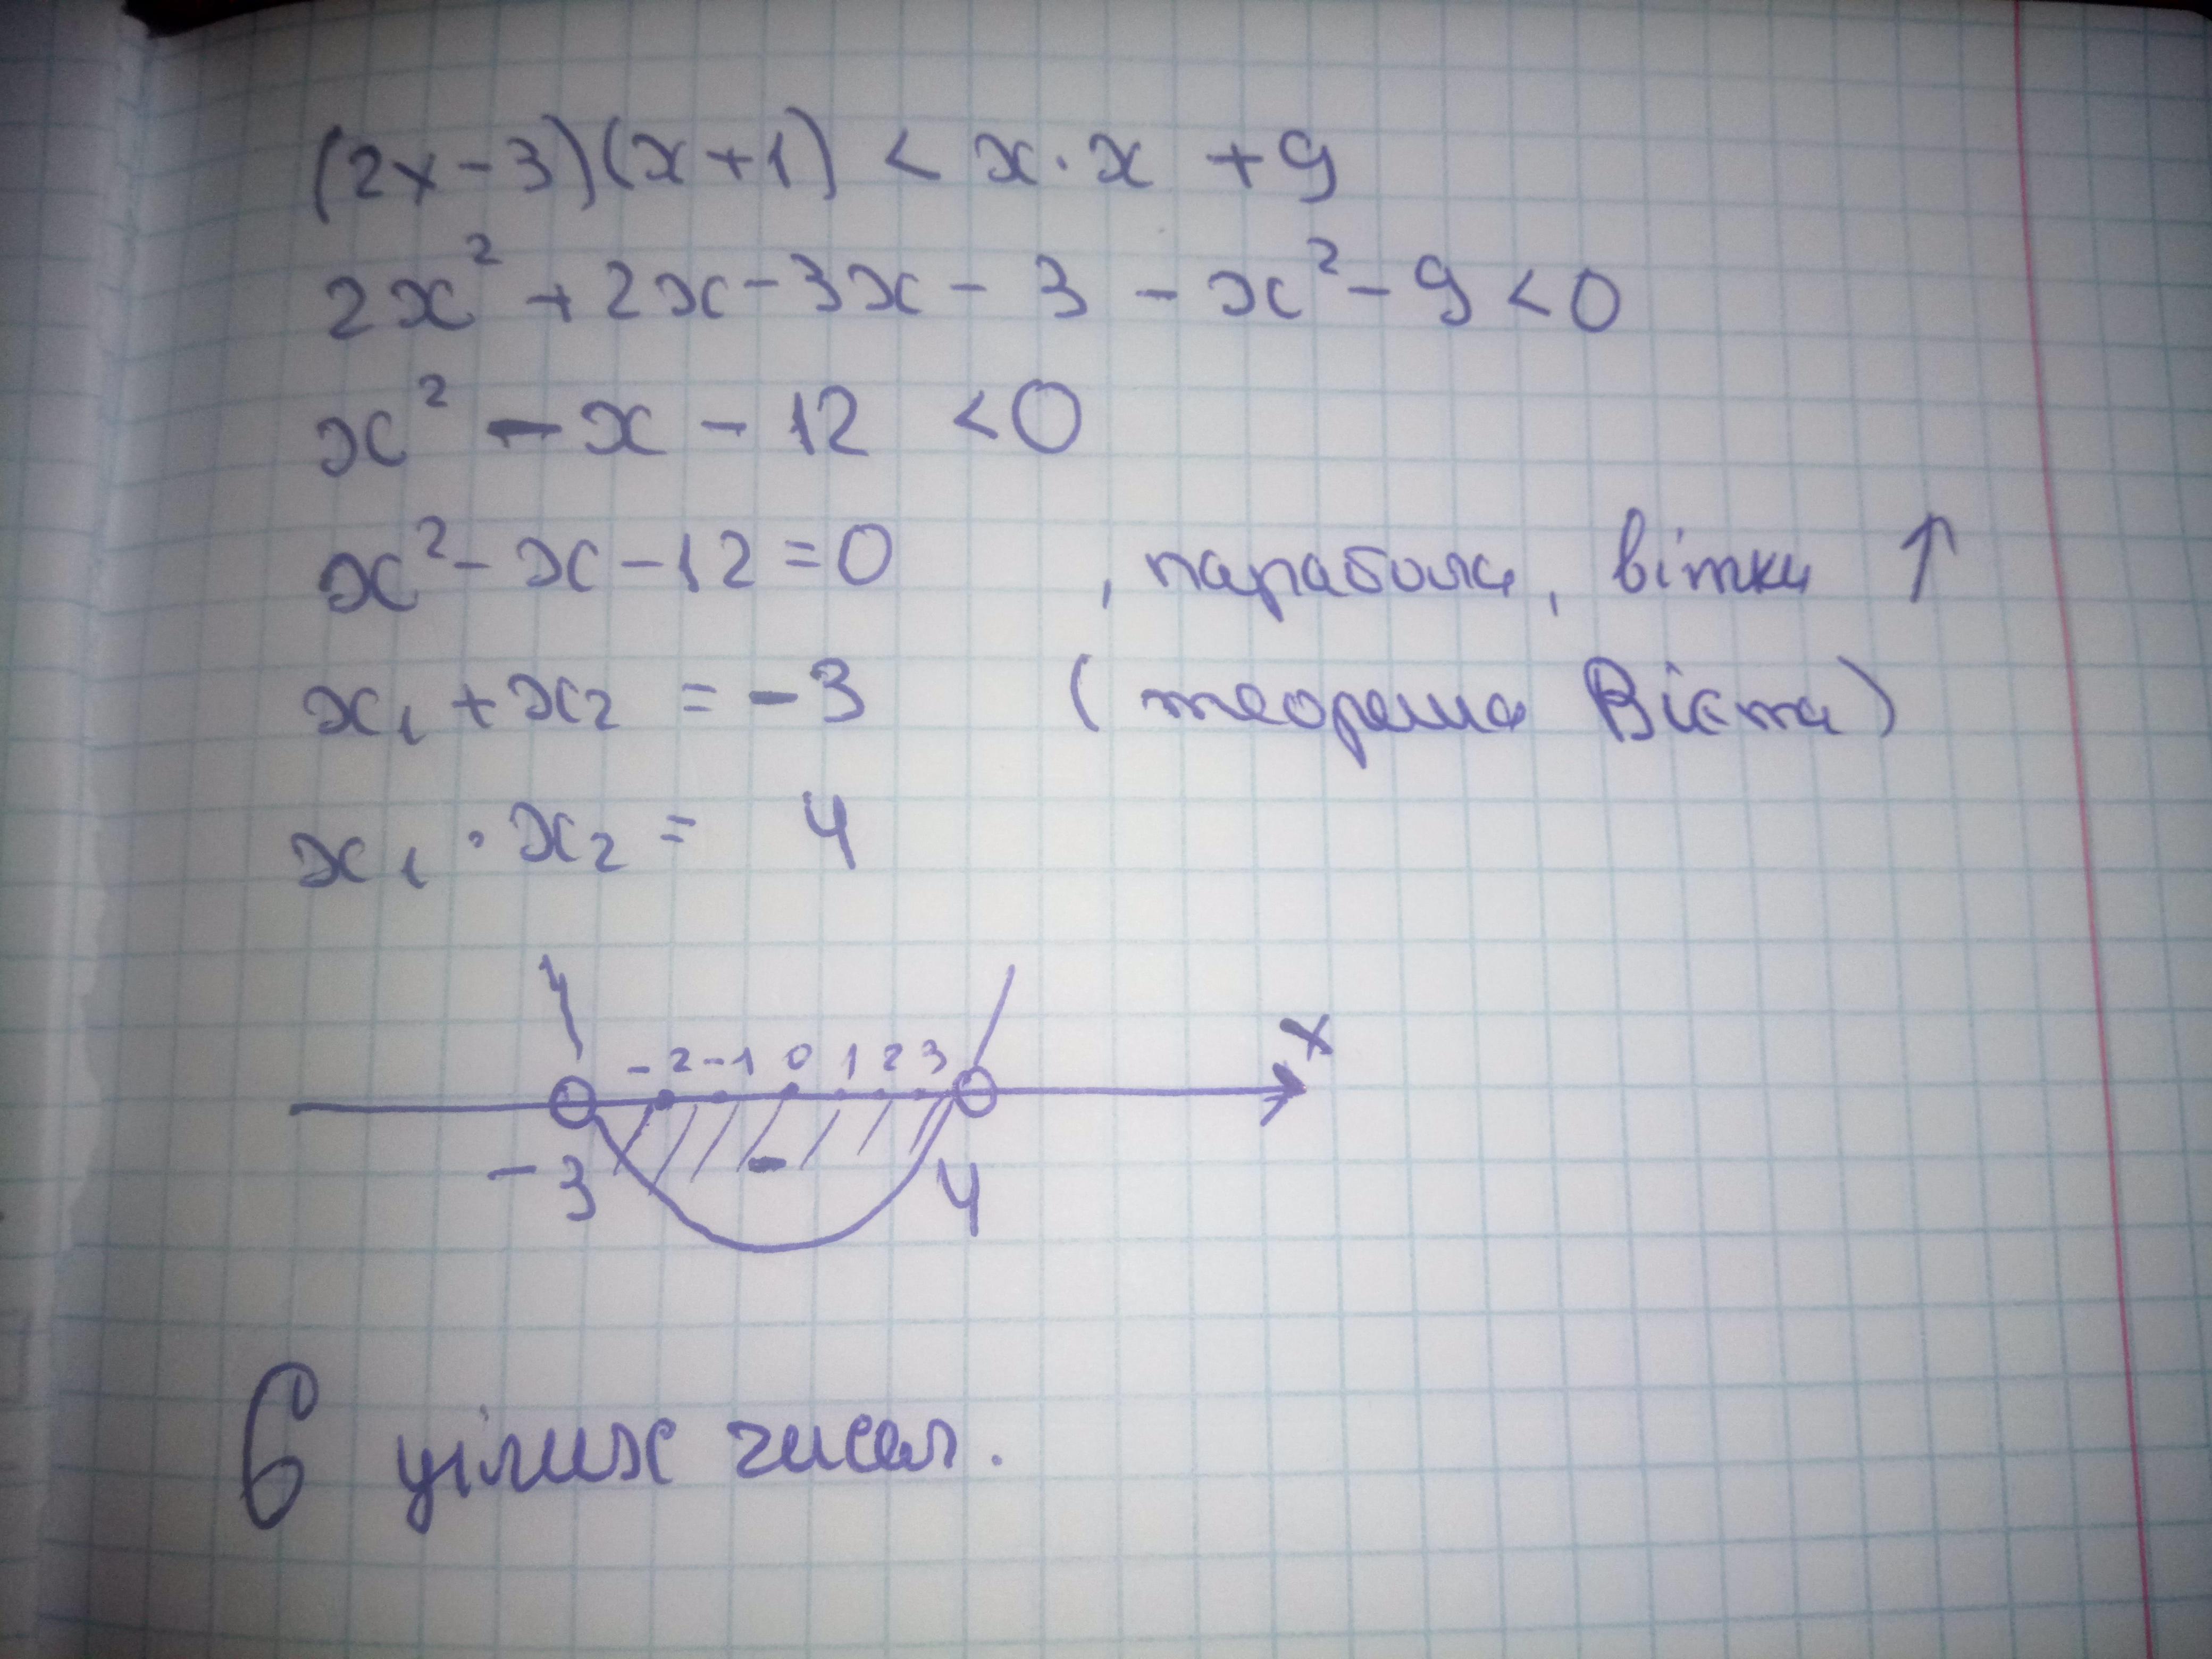 (2x-3)(x+1) < x·x +9
2x² +2x-3x-3 -x²-9<0
x² -x-12 <0
x²-x-12=0 , парабола, вітки ↑
x₁+x₂ = -3 (теорема Вієта)
x₁·x₂= 4
-2 -1 0 1 2 3 x
-3 - 4
6 цілих чисел.